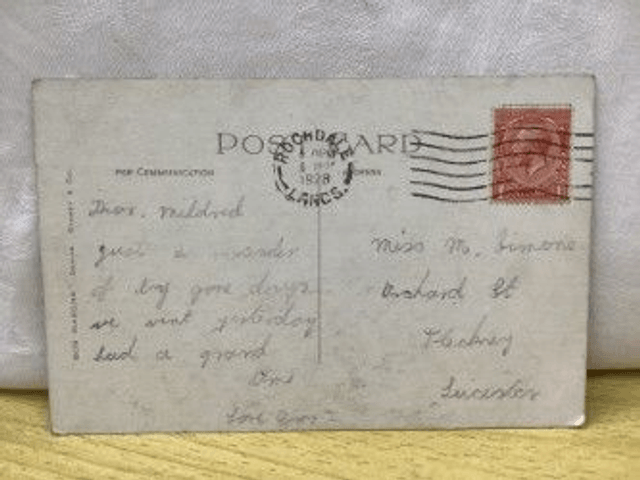 POST CARD
FOR COMMUNICATION
ROCHDALE
1928
LANCS.
Dear Mildred
just a
of by gone days
we went yesterday
had a grand
Miss M. Simons
Orchard St
Fleckney
Leicester